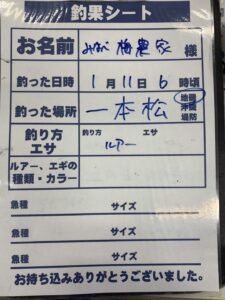 釣果シート
お名前 みなべ梅農家 様
釣った日時 1月11日6時頃
釣った場所 一本松 地磯 沖磯 堤防
釣り方 エサ 釣り方 エサ
ルアー
ルアー、エギの種類・カラー
魚種 サイズ
魚種 サイズ
魚種 サイズ
お持ち込みありがとうございました。